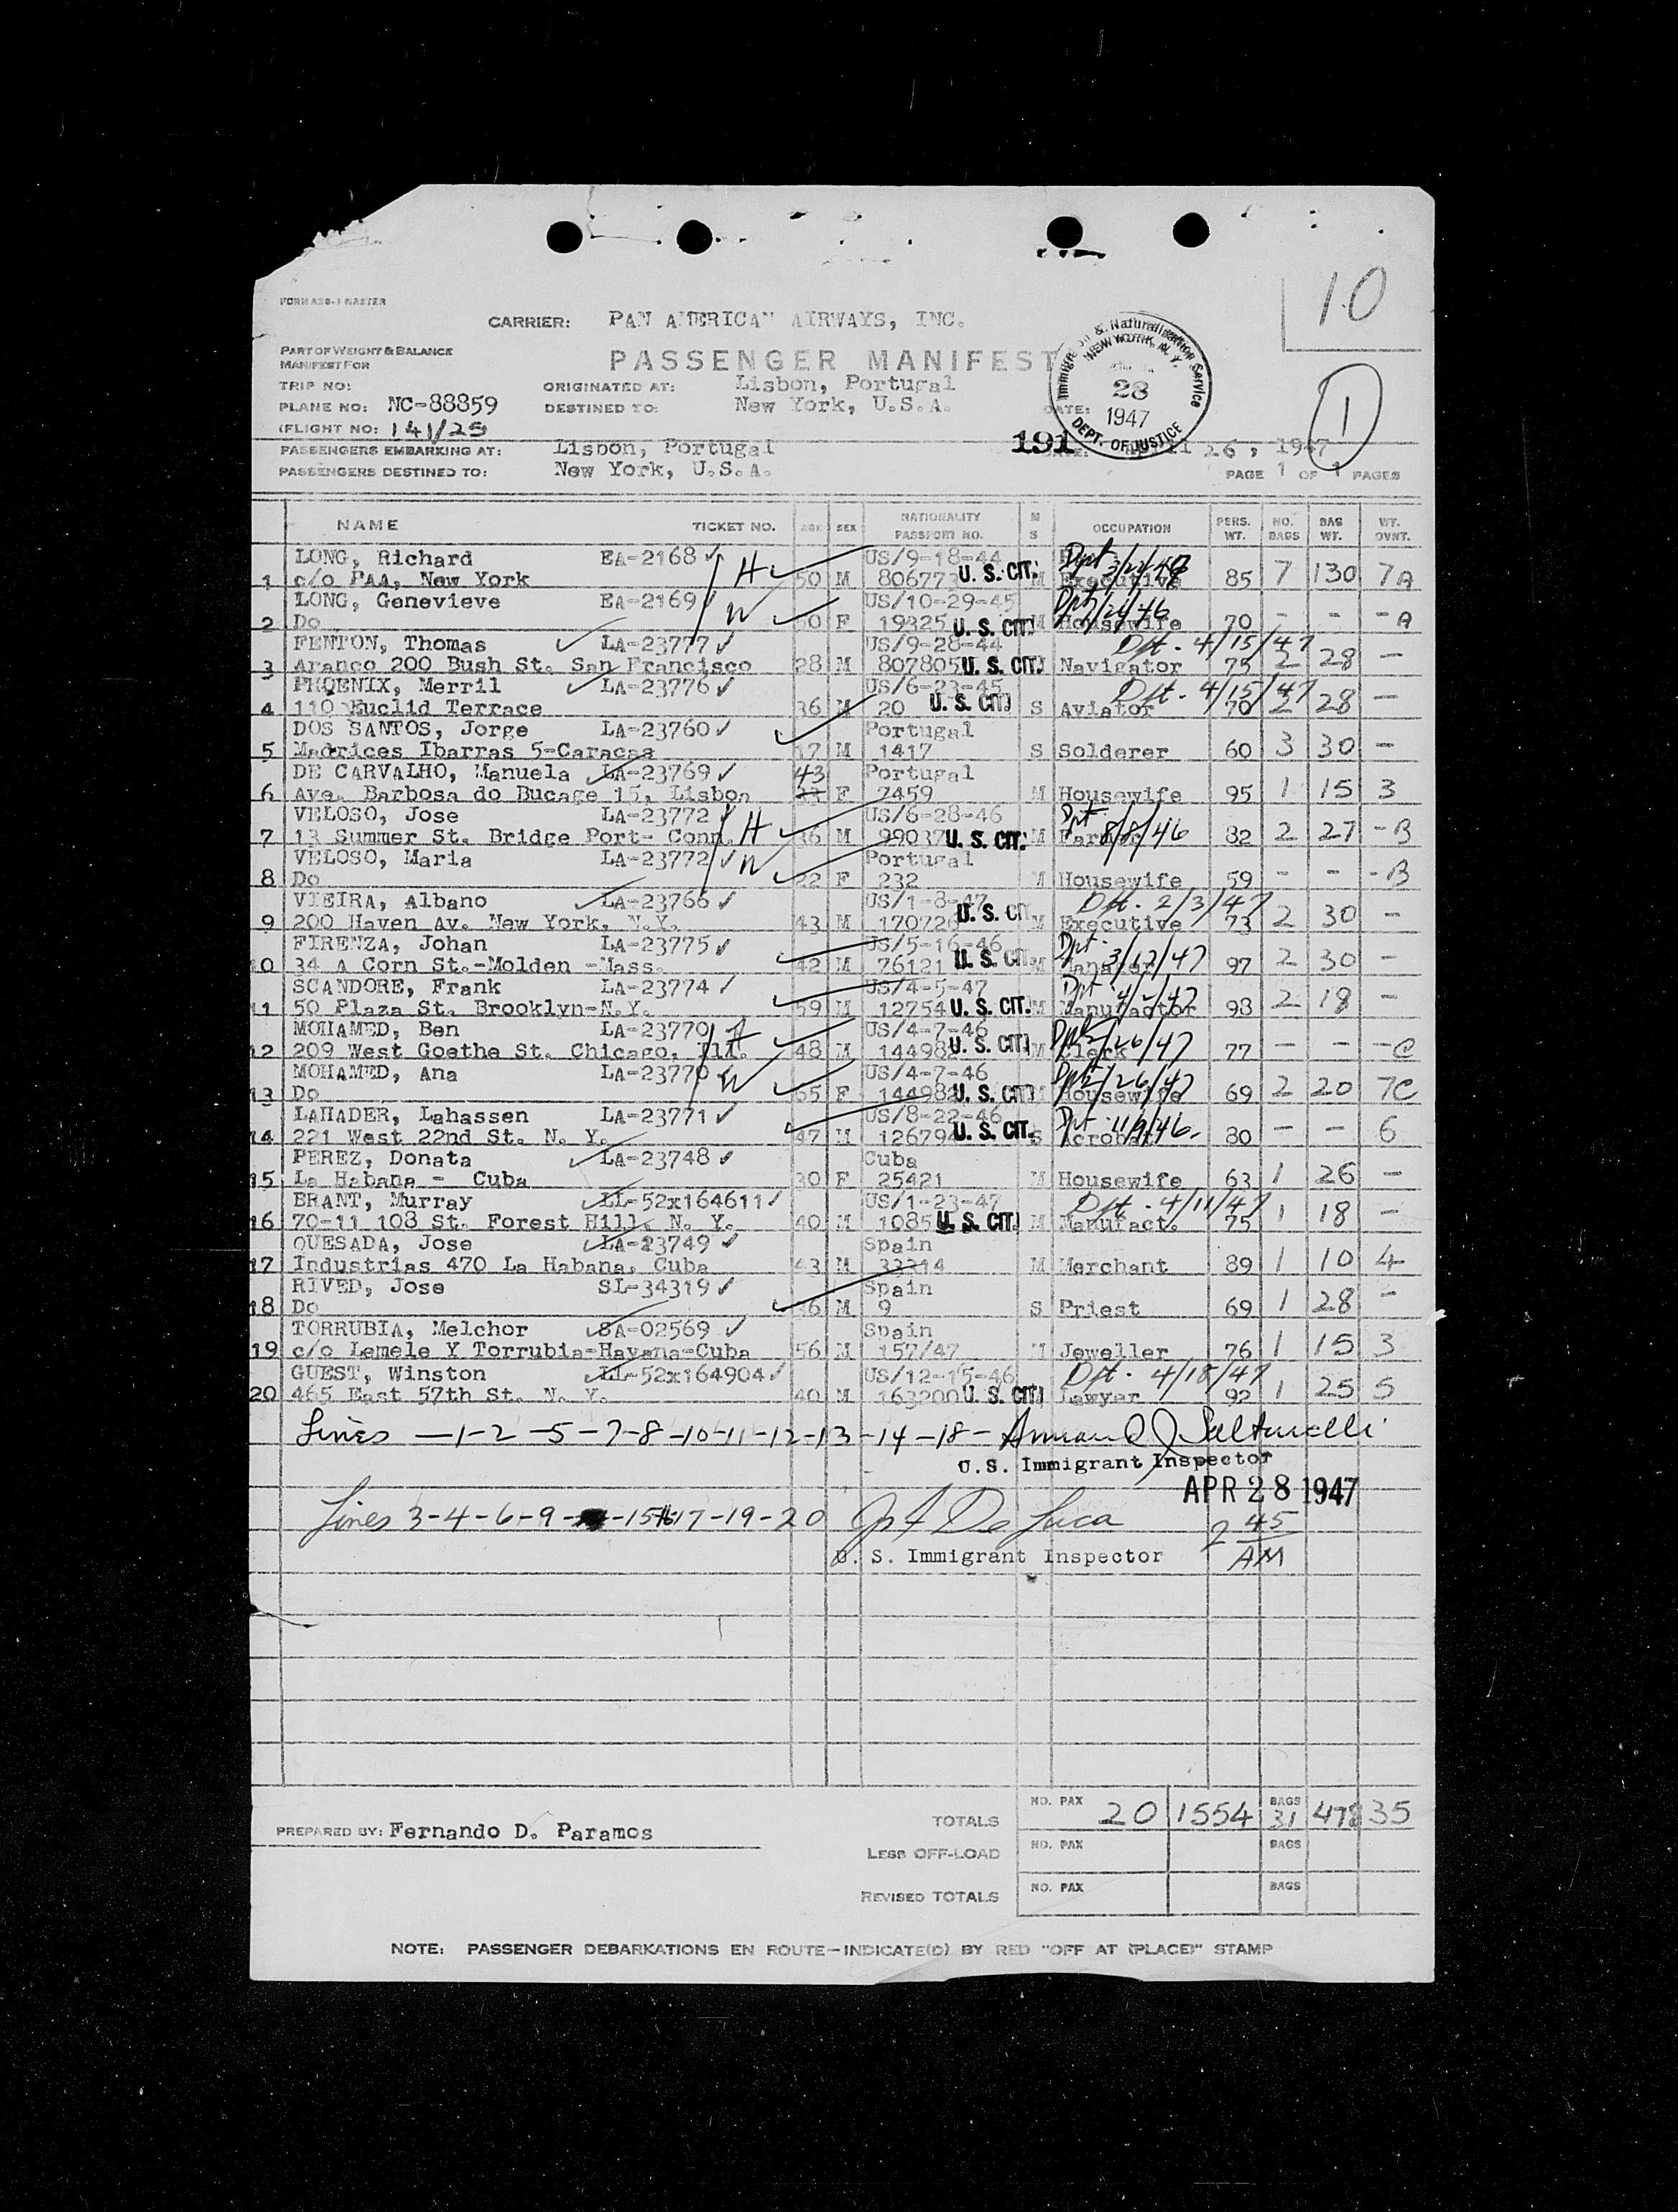 10
FORM ABG-1 MASTER
CARRIER: PAN AMERICAN AIRWAYS, INC.
PART OF WEIGHT & BALANCE
MANIFEST FOR
PASSENGER MANIFEST
Immigration & Naturalization Service
NEW YORK, N. Y.
28
1947
DEPT. OF JUSTICE
TRIP NO:
ORIGINATED AT: Lisbon, Portugal
PLANE NO: NC-88859
DESTINED TO: New York, U.S.A.
DATE:
1
(FLIGHT NO: 141/25
191
PASSENGERS EMBARKING AT: Lisbon, Portugal
DATE: 26, 1947
PASSENGERS DESTINED TO: New York, U.S.A.
PAGE 1 OF 1 PAGES
NAME TICKET NO. AGE SEX NATIONALITY PASSPORT NO. M S OCCUPATION PERS. WT. NO. BAGS BAG WT. WT. OVNT.
LONG, Richard EA-2168 H US/9-18-44 Dpt
1 c/o PAA, New York 50 M 806773 U. S. CIT. M Executive 85 7 130 7A
LONG, Genevieve EA-2169 W US/10-29-45 Dpt
2 Do 50 F 19325 U. S. CIT. M Housewife 70 - - - A
FENTON, Thomas LA-23777 US/9-28-44 Dft. 4/15/47
3 Aranco 200 Bush St. San Francisco 28 M 807805 U. S. CIT. Navigator 75 2 28 -
PHOENIX, Merril LA-23776 US/6-23-45 Dft. 4/15/47
4 110 Euclid Terrace 36 M 20 U. S. CIT. S Aviator 70 2 28 -
DOS SANTOS, Jorge LA-23760 Portugal
5 Madrices Ibarras 5-Caracas 17 M 1417 S Solderer 60 3 30 -
DE CARVALHO, Manuela LA-23769 43 Portugal
6 Ave. Barbosa do Bucage 15, Lisbon F 7459 M Housewife 95 1 15 3
VELOSO, Jose LA-23772 H US/6-28-46 Dpt
7 13 Summer St. Bridge Port- Conn. 36 M 99037 U. S. CIT. M Farmer 8/8/46 82 2 27 - B
VELOSO, Maria LA-23772 W Portugal
8 Do 22 F 232 M Housewife 59 - - - B
VIEIRA, Albano LA-23766 US/1-8-47 Dft. 2/3/47
9 200 Haven Av. New York, N.Y. 43 M 170726 U. S. CIT M Executive 73 2 30 -
FIRENZA, Johan LA-23775 US/5-16-46 Dpt.
10 34 A Corn St.-Molden -Mass. 42 M 76121 U. S. CIT. M Manager 3/12/47 97 2 30 -
SCANDORE, Frank LA-23774 US/4-5-47 Dpt
11 50 Plaza St. Brooklyn-N.Y. 59 M 12754 U. S. CIT. M Manufactor 98 2 18 -
MOHAMED, Ben LA-23770 H US/4-7-46 Dpt 2/26/47
12 209 West Goethe St. Chicago, Ill. 48 M 144982 U. S. CIT. M Clerk 77 - - - C
MOHAMED, Ana LA-23770 W US/4-7-46 Dpt 2/26/47
13 Do 55 F 144982 U. S. CIT. Housewife 69 2 20 7C
LAHADER, Lahassen LA-23771 US/8-22-46 Dpt 11/9/46
14 221 West 22nd St. N. Y. 47 M 126794 U. S. CIT. S Acrobat 80 - - 6
PEREZ, Donata LA-23748 Cuba
15 La Habana - Cuba 30 F 25421 M Housewife 63 1 26 -
BRANT, Murray LL-52x164611 US/1-23-47 Dft. 4/11/47
16 70-11 108 St. Forest Hill, N. Y. 40 M 1085 U. S. CIT. M Manufact. 75 1 18 -
QUESADA, Jose LA-23749 Spain
17 Industrias 470 La Habana, Cuba 43 M 33314 M Merchant 89 1 10 4
RIVED, Jose SL-34319 Spain
18 Do 36 M 9 S Priest 69 1 28 -
TORRUBIA, Melchor SA-02569 Spain
19 c/o Lemele Y Torrubia-Havana-Cuba 56 M 157/47 M Jeweller 76 1 15 3
GUEST, Winston LL-52x164904 US/12-15-46 Dft. 4/18/47
20 465 East 57th St. N. Y. 40 M 163200 U. S. CIT. Lawyer 92 1 25 5
Lines -1-2-5-7-8-10-11-12-13-14-18-
U.S. Immigrant Inspector
APR 28 1947
Lines 3-4-6-9-15-16-17-19-20 De Luca
2 45 AM
U. S. Immigrant Inspector
TOTALS NO. PAX 20 1554 BAGS 31 478 35
PREPARED BY: Fernando D. Paramos
LESS OFF-LOAD NO. PAX BAGS
REVISED TOTALS NO. PAX BAGS
NOTE: PASSENGER DEBARKATIONS EN ROUTE-INDICATE(D) BY RED "OFF AT (PLACE)" STAMP